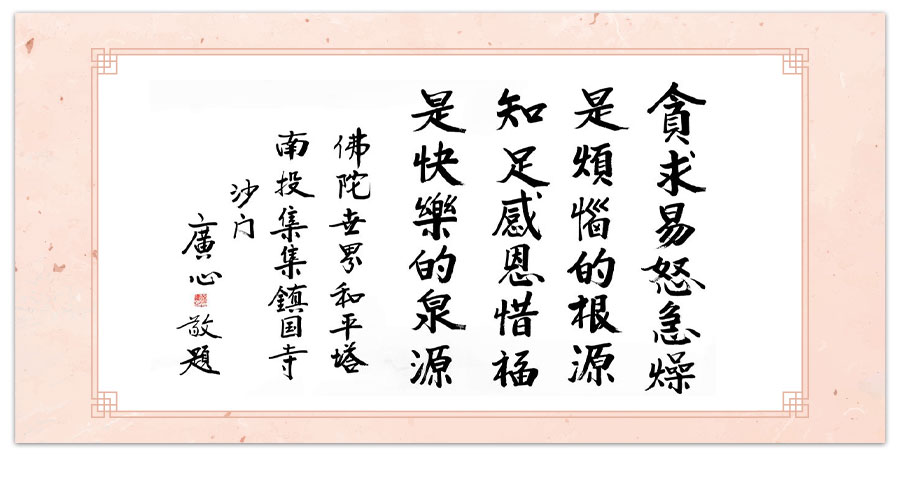 貪求易怒急燥
是煩惱的根源
知足感恩惜福
是快樂的泉源
佛陀世界和平塔
南投集集鎮国寺
沙门
廣心敬題